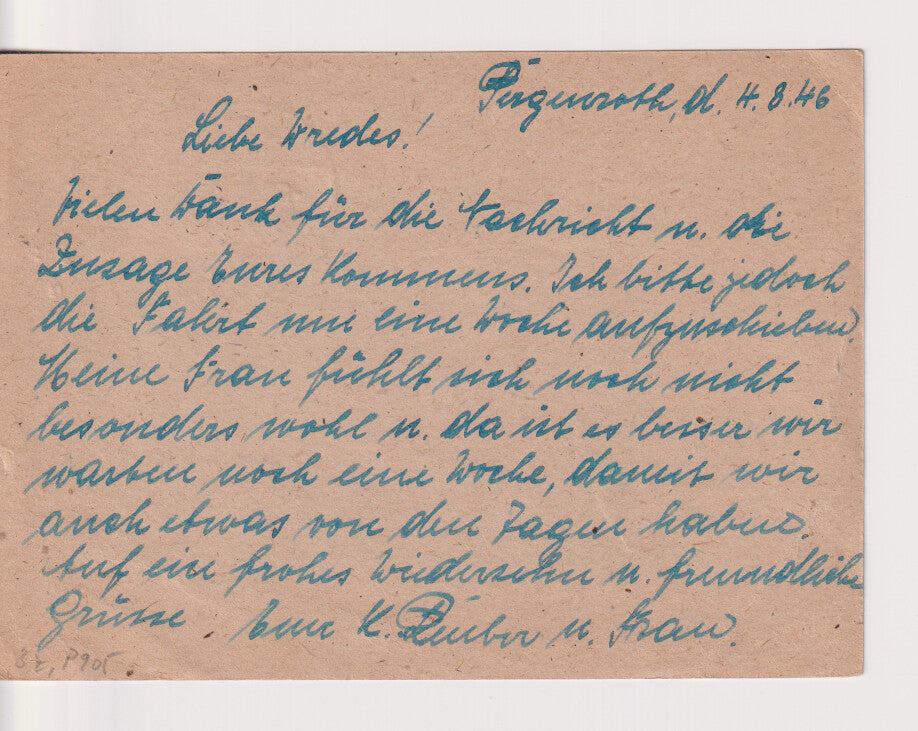 Pergenroth, d. 4.8.46
Liebe Wredes!
Vielen Dank für die Nachricht u. die
Zusage Eures Kommens. Ich bitte jedoch
die Fahrt um eine Woche aufzuschieben.
Meine Frau fühlt sich noch nicht
besonders wohl u. da ist es besser wir
warten noch eine Woche, damit wir
auch etwas von den Tagen haben.
Auf ein frohes Wiedersehn u. freundliche
Grüsse Euer K. u. Frau.
P905